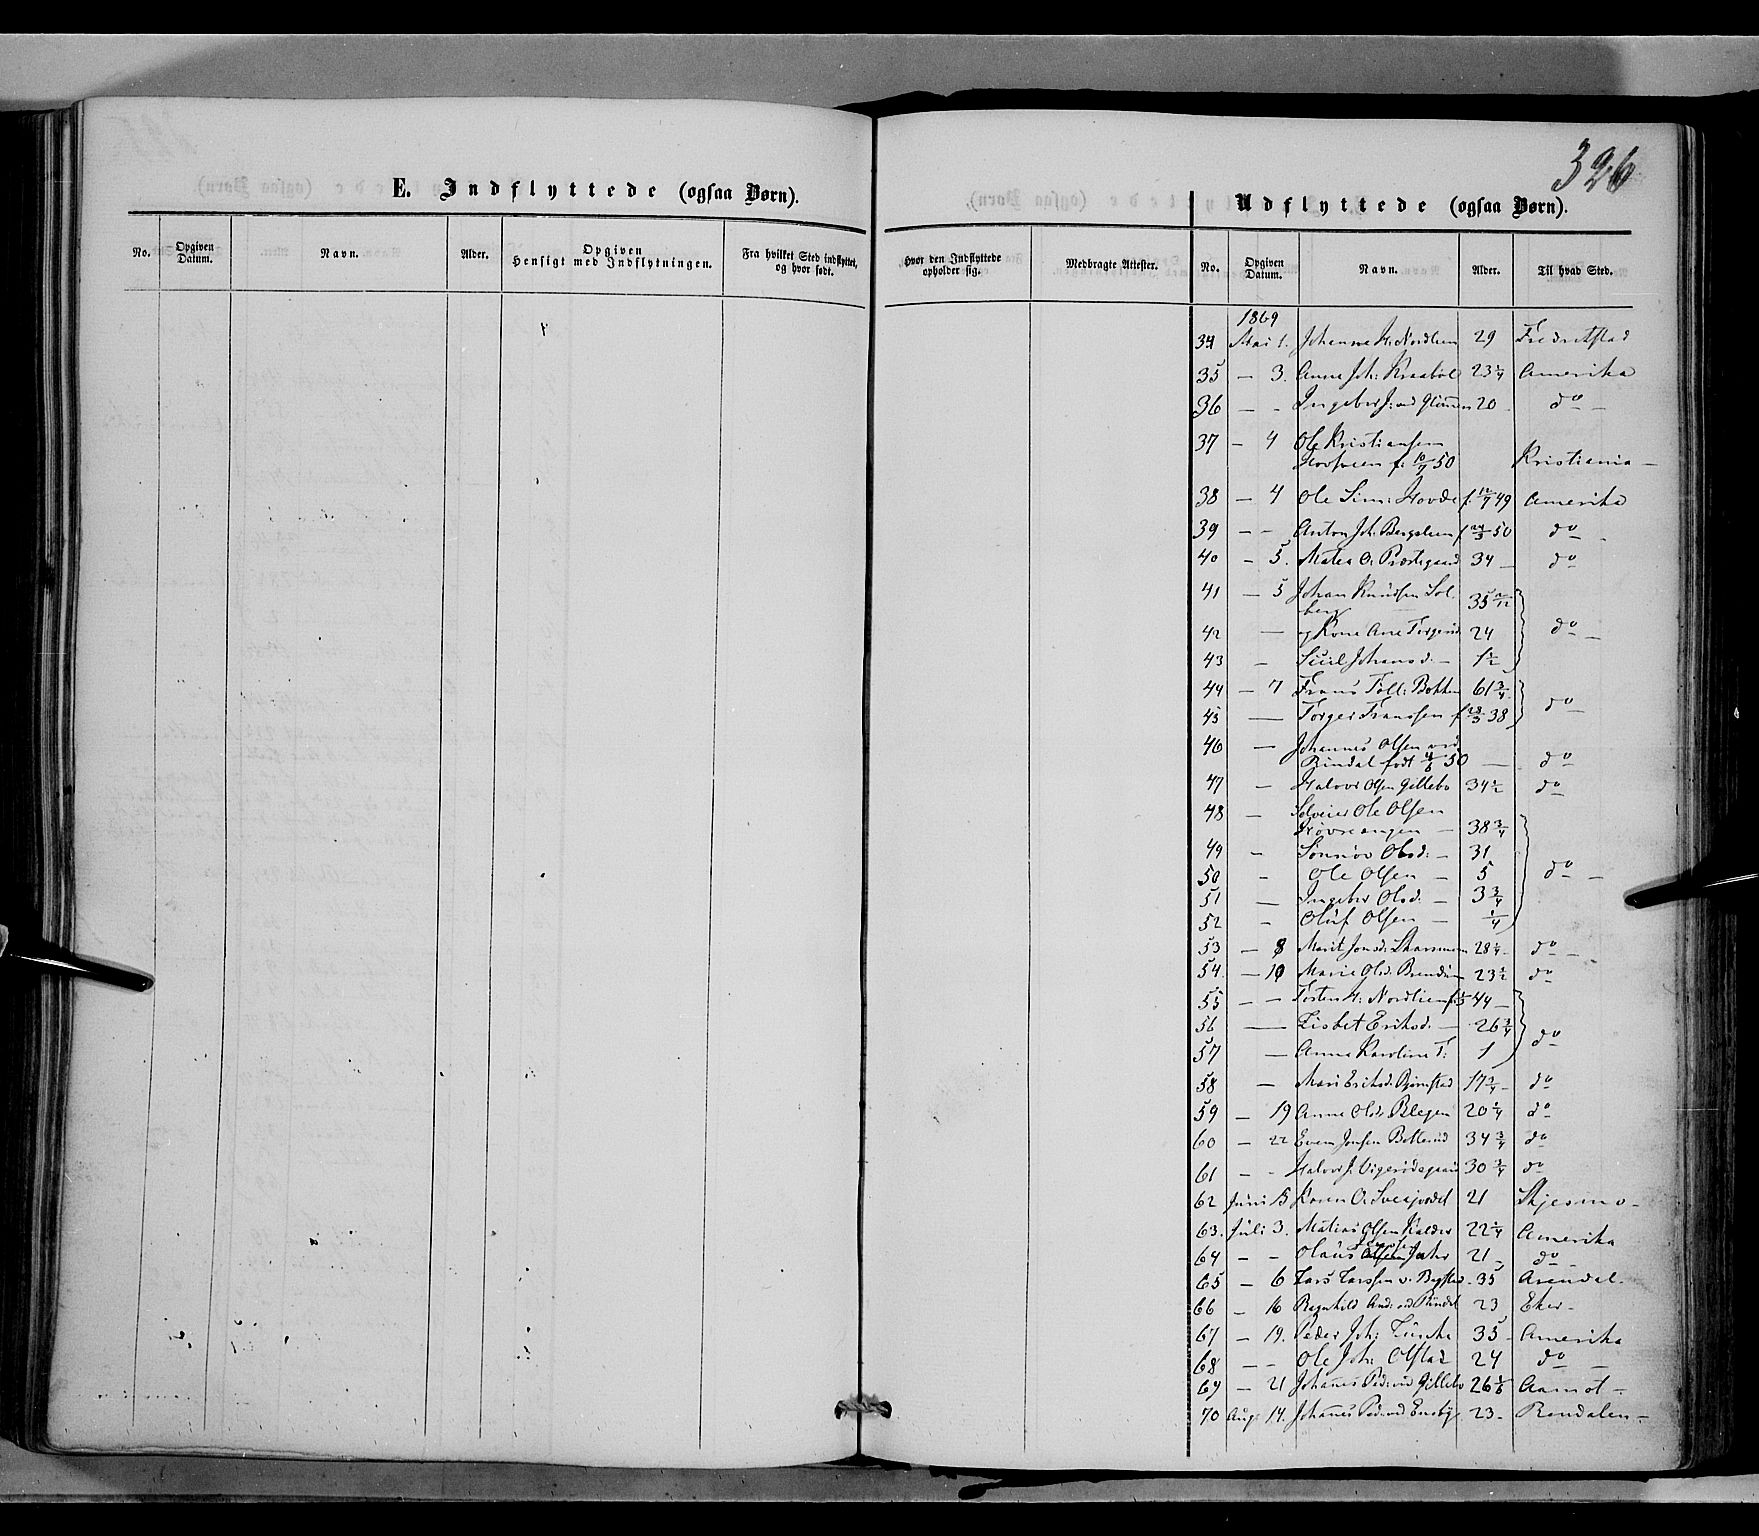 326
E. Indflyttede (ogsaa Børn).
Udflyttede (ogsaa Børn).
No. Opgiven Datum. Navn. Alder. Opgiven Hensigt med Indflytningen. Fra hvilket Sted indflyttet, og hvor født. Hvor den Indflyttede opholder sig. Medbragte Attester. No. Opgiven Datum. Navn. Alder. Til hvad Sted.
1869
34 Mai 1. Johanne H. Nordlien 29 Fredrikstad
35 — 3. Anne Joh: Kraabøl 23 1/4 Amerika
36 — - Ingebor J: 20 do —
37 — 4 Ole Kristiansen
f. 10/7 50 Kristiania —
38 — 4 Ole Sim: Hovde f. 12/7 49 Amerika
39 — — Anton Joh: Bergslien f 24/3 50 do -
40 — 5. Matea O. Præstegaard 34 — do
41 — 5 Johan Knudsen Sol-
berg 35 2/12
42 — og Kone Ane Torgersd 24 do —
43 — Johansd. — 1 1/2
44 — 7 Frans Toll: Bakken 61 3/4
45 — Torger Franssen f 28/3 38 do —
46 — Johannes Olsen ved
Rindal født 4/6 50 — do
47 — Halvor Olsen Gillebo 34 1/2 do
48 — Selveier Ole Olsen
— 38 3/4
49 — Sønnøv Olsd: — 31
50 - Ole Olsen — 5 do —
51 — Ingebor Olsd. — 3 3/4
52 - Oluf Olsen — 1/4
53 — 8 Marit Jonsd: 28 1/4 - do — -
54. — 10 Marie Olsd. 23 1/2 do
55 — — Torsten H: Nordlien 44 —
56 — Lisbet Eriksd. — 26 3/4 do
57 — Anna Karoline T: 1
58 — Mari Eriksd. Bjørnstad 17 3/4 - do
59 — 19 Anne Olsd: Blegen 20 1/4 do
60 — 22 Even Jonsen Botterud 34 3/4 do
61 — - Halvor J: 30 3/4 do
62 Juni Karen O. 21 Skjesmo -
63. Juli 3. Matias Olsen Kalder 22 1/4 Amerika
64 — - Olaus Jahr 21 - do -
65 — 6 Lars Larssen v. 35 Arendal.
66 — 16 Ragnhild And: ved Rindal 23 Eker -
67 — 19. Peder Joh: 35 - Amerika
68 — - Ole Joh: Olstad 24 do —
69 — 21 Johanes Ped: ved Gillebo 26 1/6 Aamot -
70 Aug. 14. Johanes Ped: ved Ensby 23 - Rendalen -